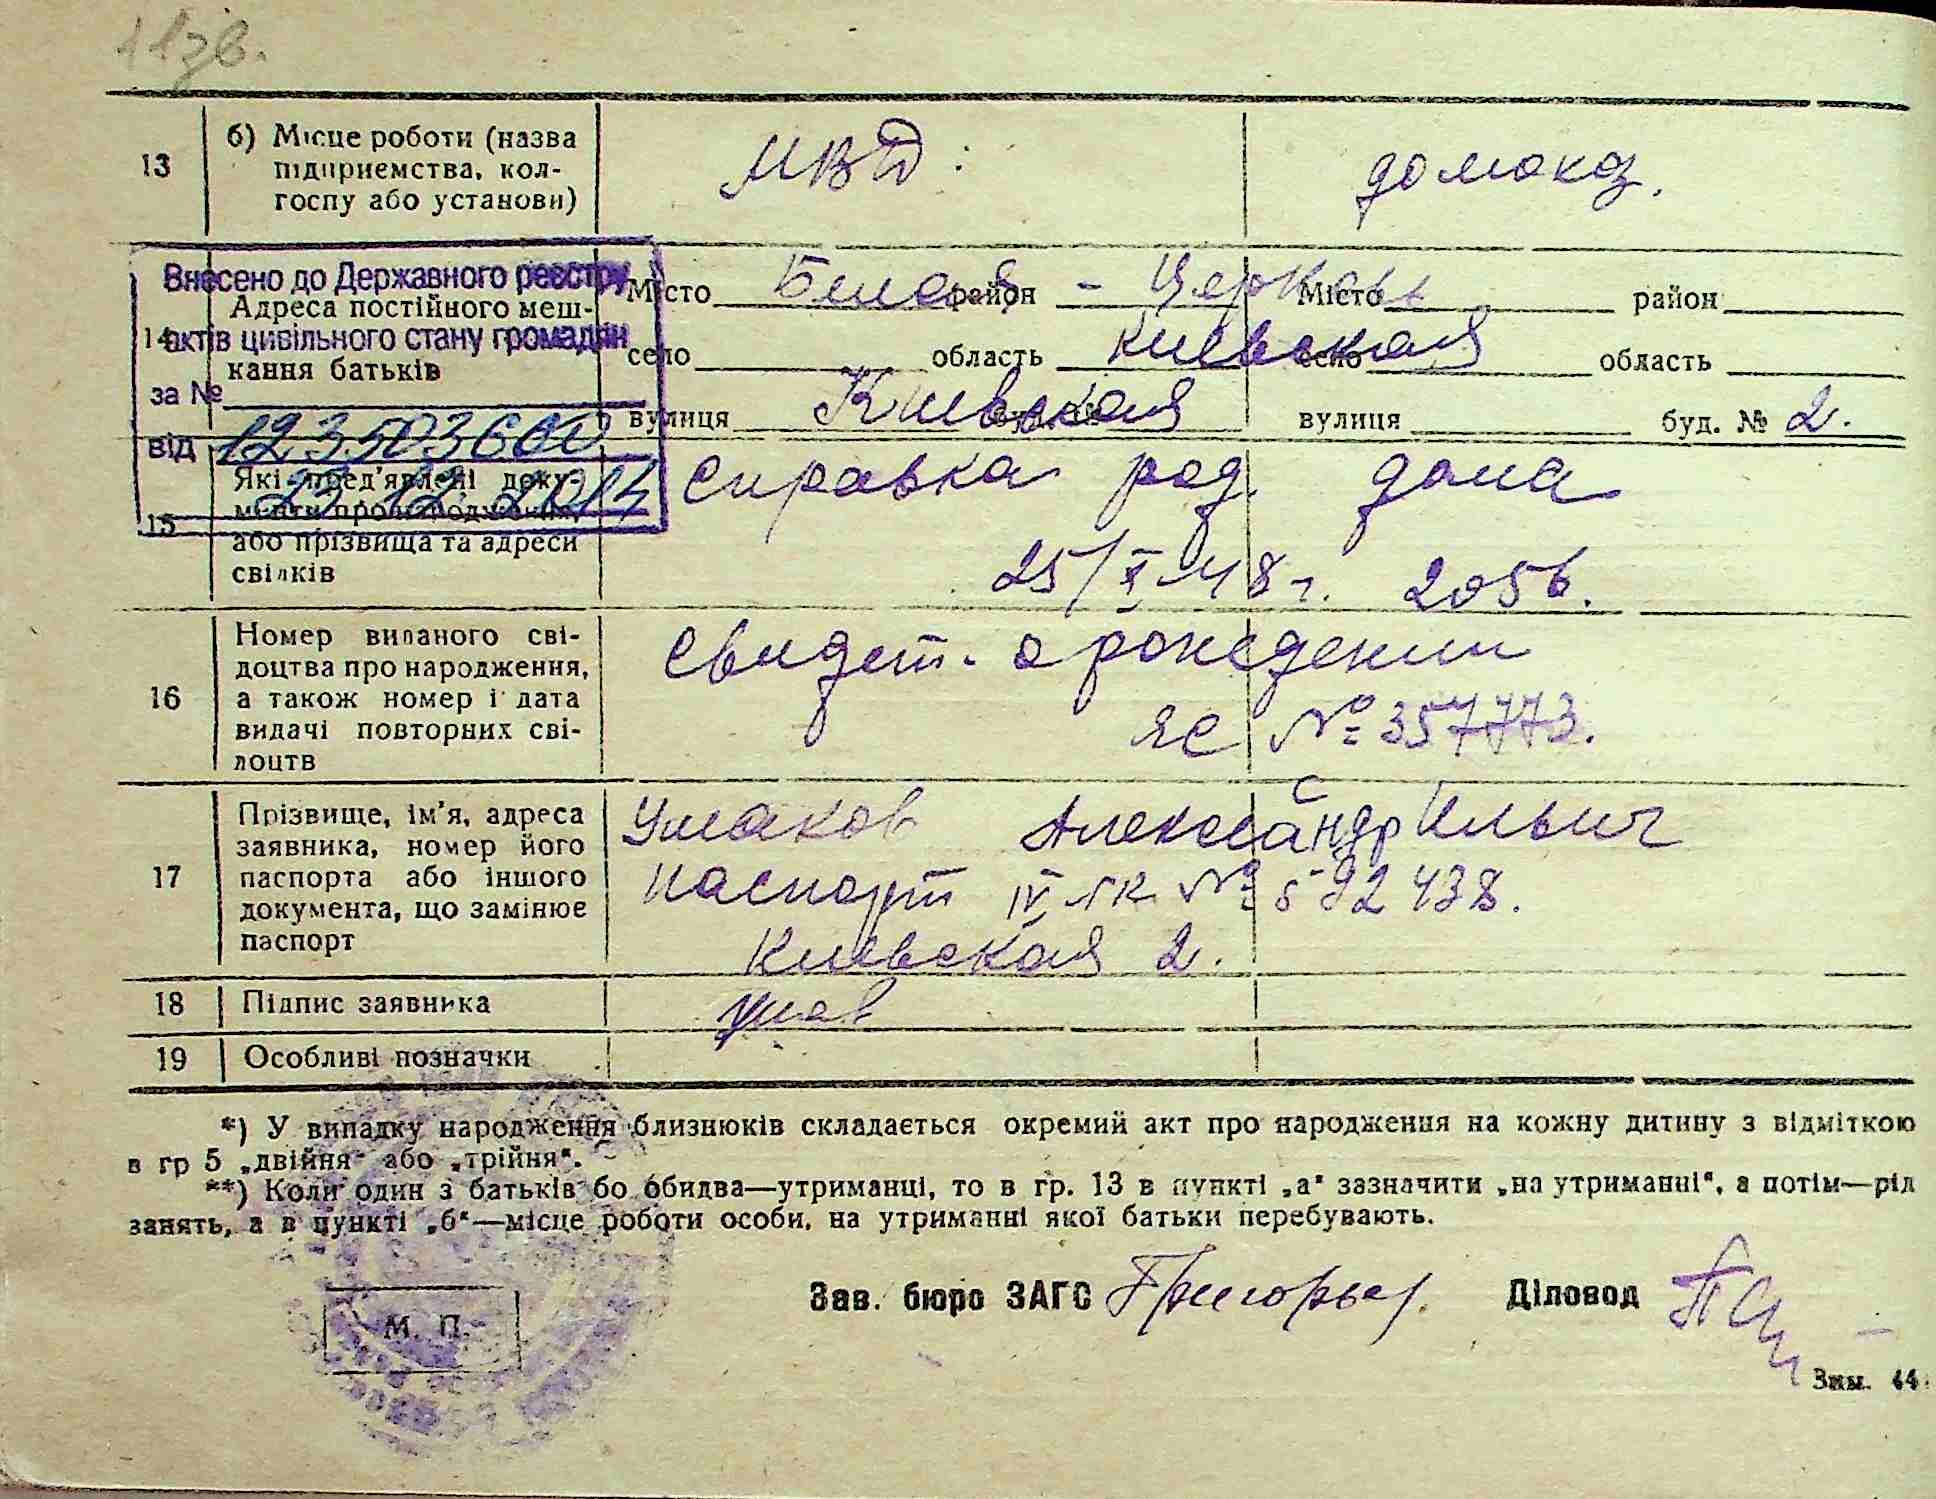 11зв.
13 б) Місце роботи (назва
підприємства, кол-
госпу або установи)
МВД.
домохоз.
Внесено до Державного реєстру
актів цивільного стану громадян
за №
від 12350366
23.12.2014
14 Адреса постійного меш-
кання батьків
Місто Белая район - Церковь Місто район
село область Киевская село область
вулиця Киевская вулиця буд. № 2.
15 Які пред'явлені доку-
менти про народження,
або прізвища та адреси
свідків
Справка род. дома
25/X 48 г. 2056.
16 Номер виданого сві-
доцтва про народження,
а також номер і дата
видачі повторних сві-
доцтв
Свидет. о рождении
ЯС № 357773.
17 Прізвище, ім'я, адреса
заявника, номер його
паспорта або іншого
документа, що замінює
паспорт
Ушаков Александр Ильич
паспорт IV № 592438.
Киевская 2.
18 Підпис заявника
Ушак
19 Особливі позначки
*) У випадку народження близнюків складається окремий акт про народження на кожну дитину з відміткою
в гр 5 „двійня" або „трійня".
**) Коли один з батьків бо обидва—утриманці, то в гр. 13 в пункті „а" зазначити „на утриманні", а потім—рід
занять, а в пункті „б"—місце роботи особи, на утриманні якої батьки перебувають.
Зав. бюро ЗАГС Григорьев Діловод
М. П.
Зам. 44